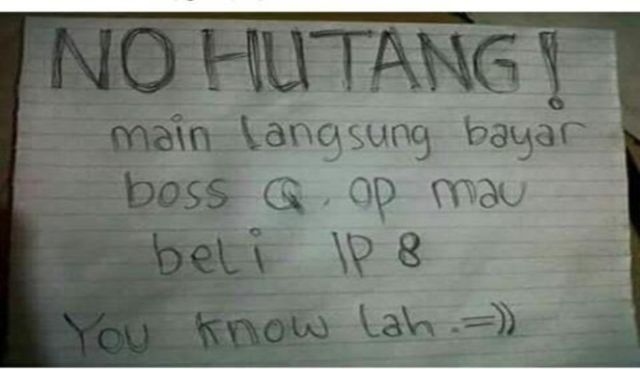 NO HUTANG!
main langsung bayar
boss Q. op mau
beli IP 8
You know lah.=))